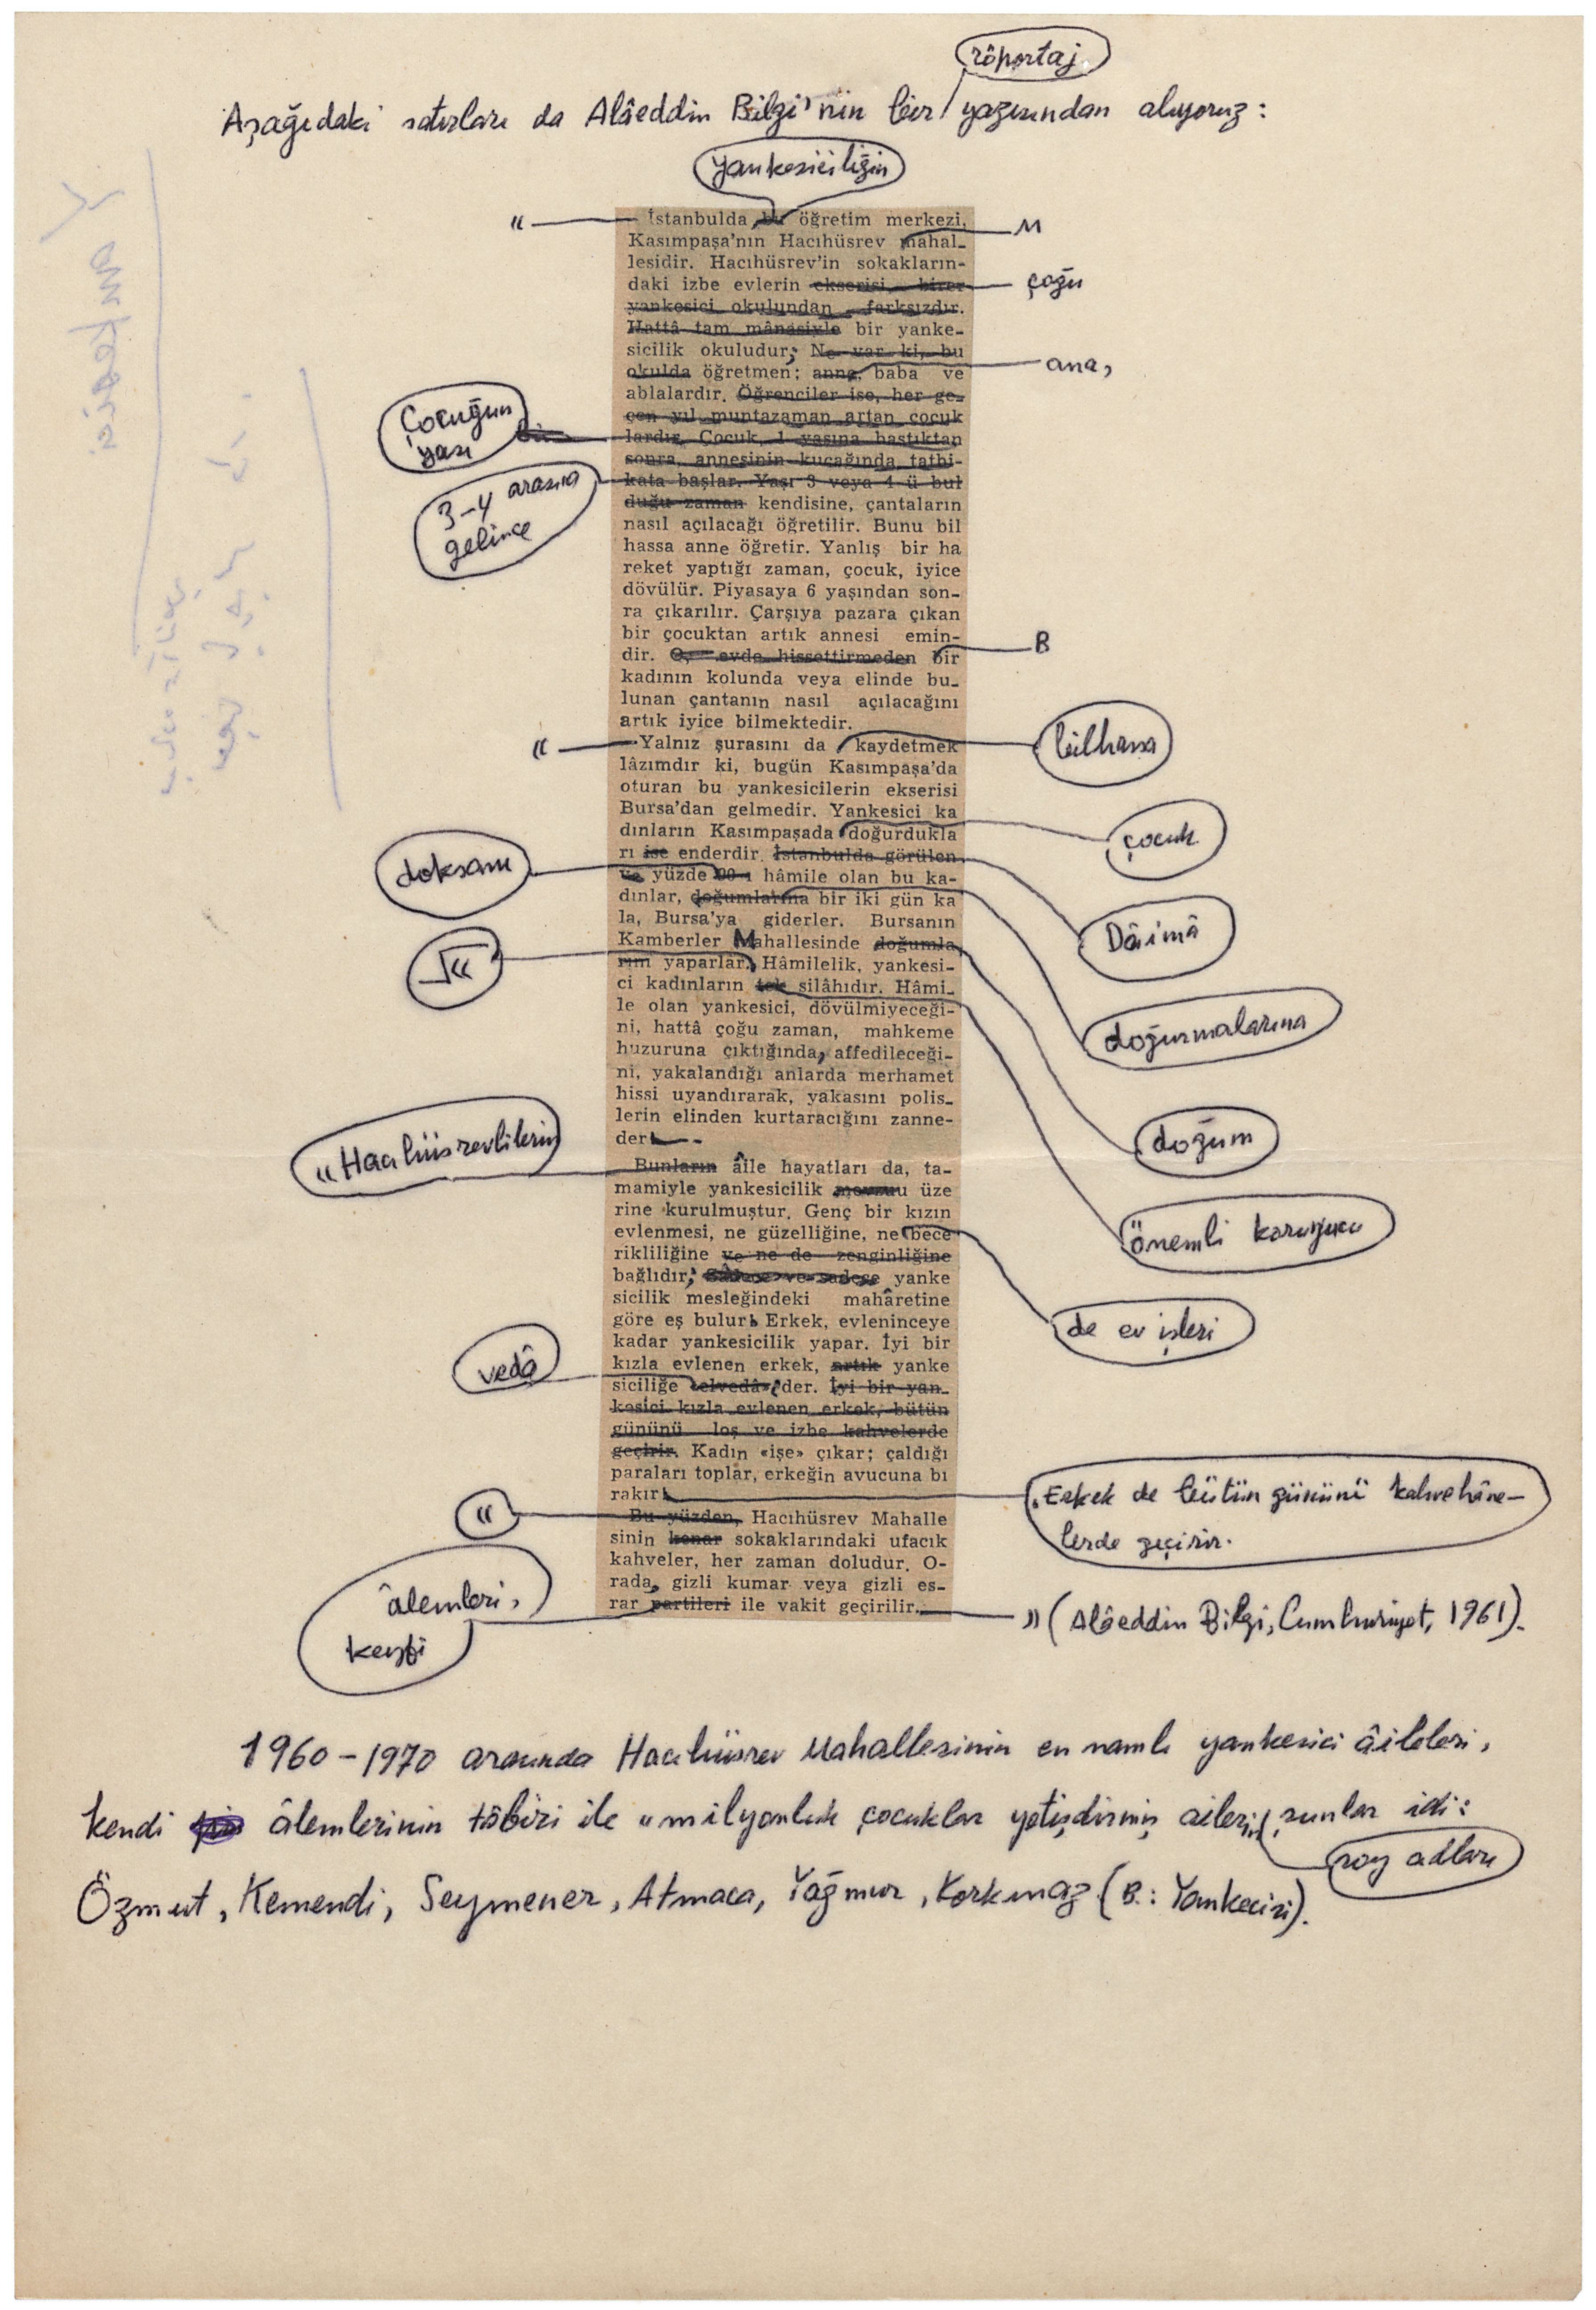 röportaj
Aşağıdaki satırları da Alâeddin Bilgi'nin bir yazısından alıyoruz:
yankesiciliğin
« İstanbulda bu öğretim merkezi,
Kasımpaşa'nın Hacıhüsrev mahal- M
lesidir. Hacıhüsrev'in sokakların-
daki izbe evlerin ekserisi, birer çoğu
yankesici okulundan farksızdır.
Hattâ tam mânasiyle bir yanke-
sicilik okuludur; Ne var ki, bu
okulda öğretmen; anne, baba ve ana,
ablalardır. Öğrenciler ise, her ge-
çen yıl muntazaman artan çocuk
Çocuğun
yaşı
lardır. Çocuk, 1 yaşına bastıktan
sonra, annesinin kucağında tatbi-
3-4 arasına
gelince
kata başlar. Yaşı 3 veya 4 ü bul
duğu zaman kendisine, çantaların
nasıl açılacağı öğretilir. Bunu bil
hassa anne öğretir. Yanlış bir ha
reket yaptığı zaman, çocuk, iyice
dövülür. Piyasaya 6 yaşından son-
ra çıkarılır. Çarşıya pazara çıkan
bir çocuktan artık annesi emin-
dir. O, evde hissettirmeden bir B
kadının kolunda veya elinde bu-
lunan çantanın nasıl açılacağını
artık iyice bilmektedir.
« Yalnız şurasını da kaydetmek bilhassa
lâzımdır ki, bugün Kasımpaşa'da
oturan bu yankesicilerin ekserisi
Bursa'dan gelmedir. Yankesici ka
dınların Kasımpaşada doğurdukla çocuk
rı ise enderdir. İstanbulda görülen Dâimâ
doksanı
ve yüzde 90 ı hâmile olan bu ka-
dınlar, doğumlarına bir iki gün ka doğurmalarına
la, Bursa'ya giderler. Bursanın
Kamberler Mahallesinde doğumla doğum
«
rını yaparlar. Hâmilelik, yankesi-
ci kadınların tek silâhıdır. Hâmi- önemli koruyucu
le olan yankesici, dövülmiyeceği-
ni, hattâ çoğu zaman, mahkeme
huzuruna çıktığında, affedileceği-
ni, yakalandığı anlarda merhamet
hissi uyandırarak, yakasını polis-
lerin elinden kurtaracığını zanne-
der.
«Hacıhüsrevlilerin
Bunların âile hayatları da, ta-
mamiyle yankesicilik mevzuu üze
rine kurulmuştur. Genç bir kızın
evlenmesi, ne güzelliğine, ne bece de ev işleri
rikliliğine ve ne de zenginliğine
bağlıdır; ve sadece yanke
sicilik mesleğindeki mahâretine
göre eş bulur. Erkek, evleninceye
kadar yankesicilik yapar. İyi bir
kızla evlenen erkek, artık yanke
vedâ
siciliğe «elvedâ» der. İyi bir yan-
kesici kızla evlenen erkek, bütün
gününü loş ve izbe kahvelerde
geçirir. Kadın «işe» çıkar; çaldığı
paraları toplar, erkeğin avucuna bı
rakır. Erkek de bütün gününü kahvehâne-
lerde geçirir.
« Bu yüzden, Hacıhüsrev Mahalle
sinin kenar sokaklarındaki ufacık
kahveler, her zaman doludur. O-
rada, gizli kumar veya gizli es-
âlemleri,
keyfi
rar partileri ile vakit geçirilir. » (Alâeddin Bilgi, Cumhuriyet, 1961).
1960-1970 arasında Hacıhüsrev Mahallesinin en namlı yankesici âileleri,
kendi âlemlerinin tâbiri ile «milyonluk çocuklar yetişdirmiş ailerin şunlar idi:
soy adları
Özmut, Kemendi, Seymener, Atmaca, Yağmur, Korkmaz (B.: Yankecisi).